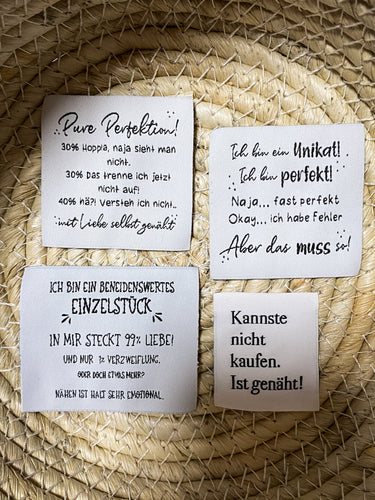 Pure Perfektion!
30% Hoppla, naja sieht man
nicht.
30% Das trenne ich jetzt
nicht auf!
40% hä?! Versteh ich nicht..
mit Liebe selbst genäht
Ich bin ein Unikat!
Ich bin perfekt!
Naja... fast perfekt
Okay... ich habe Fehler
Aber das muss so!
ICH BIN EIN BENEIDENSWERTES
EINZELSTÜCK
IN MIR STECKT 99% LIEBE!
UND NUR 1% VERZWEIFLUNG.
ODER DOCH ETWAS MEHR?
NÄHEN IST HALT SEHR EMOTIONAL.
Kannste
nicht
kaufen.
Ist genäht!